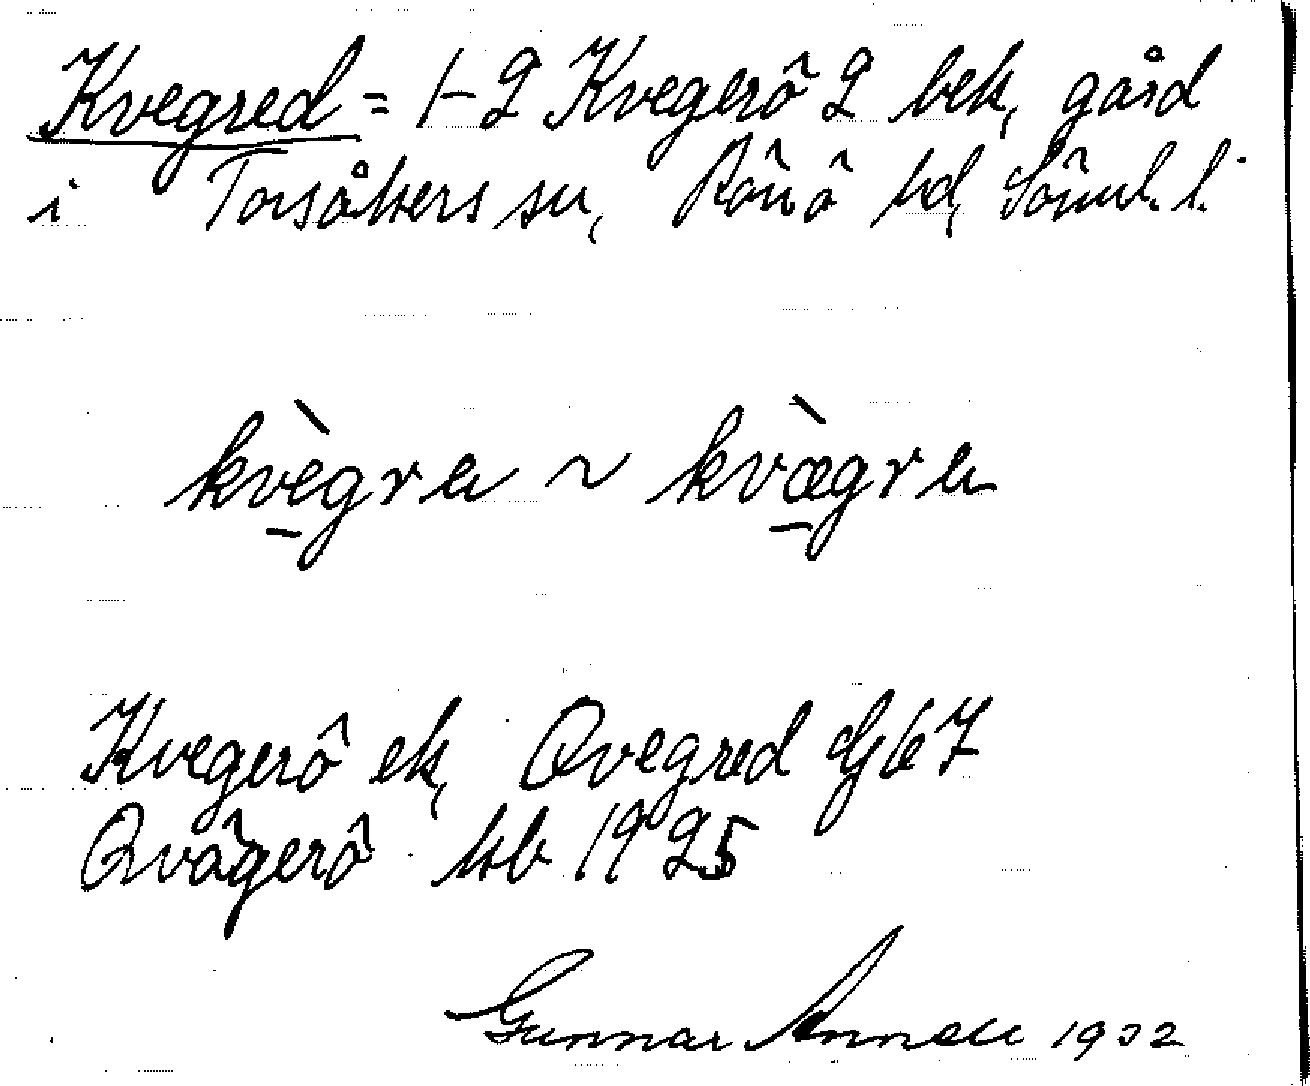 Kvegred = 1-2 Kvegerö 2 bek, gård
i Torsåkers sn, Rönö hd, Sörml. l.
kvègra ~ kvægra
Kvegerö ek, Qvegred dj 67
Qvägerö kb 1925
Gunnar Annell 1932